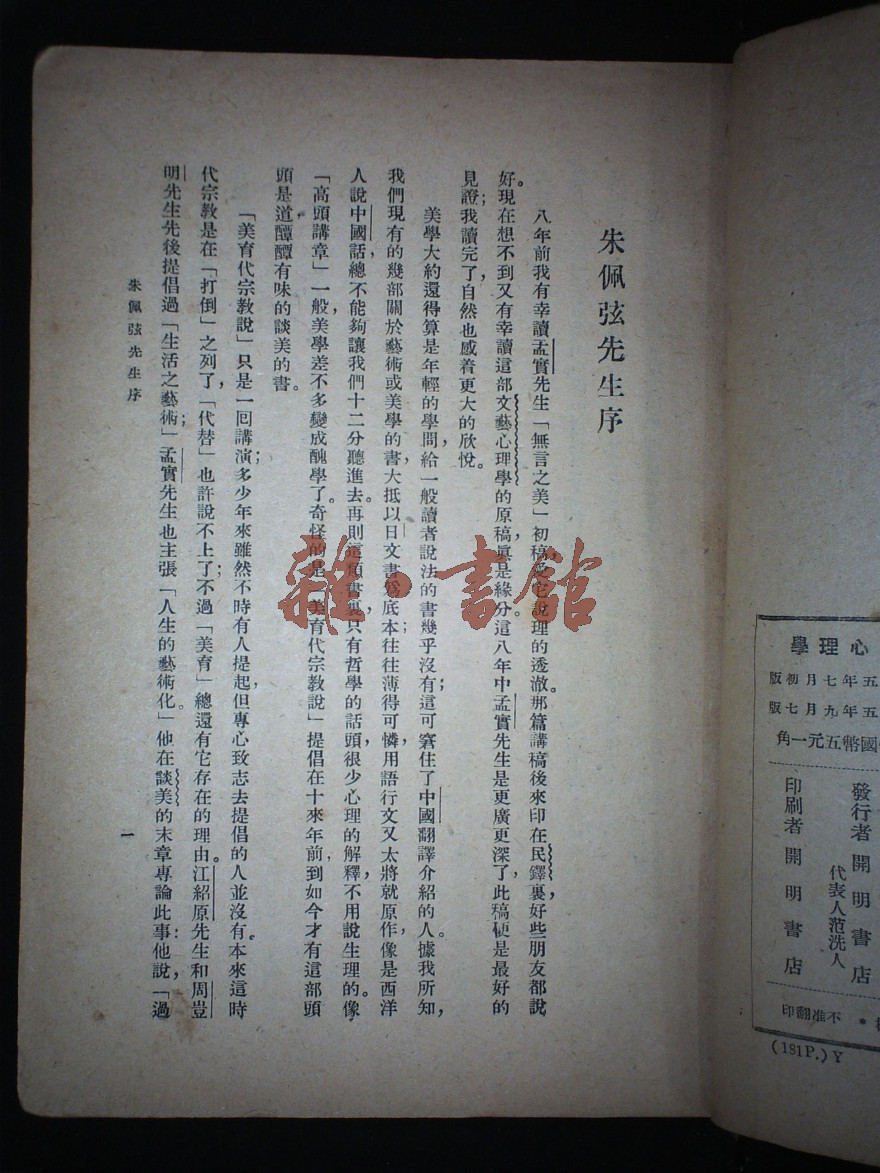 朱佩弦先生序
八年前我有幸讀孟實先生「無言之美」初稿,愛它說理的透澈。那篇講稿後來印在民鐸裏,好些朋友都說
好。現在想不到又有幸讀這部文藝心理學的原稿,眞是緣分。這八年中孟實先生是更廣更深了,此稿便是最好的
見證;我讀完了,自然也感着更大的欣悅。
美學大約還得算是年輕的學問,給一般讀者說法的書幾乎沒有;這可窘住了中國翻譯介紹的人。據我所知,
我們現有的幾部關於藝術或美學的書,大抵以日文書爲底本;往往薄得可憐,用語行文又太將就原作,像是西洋
人說中國話,總不能夠讓我們十二分聽進去。再則這類書裏,只有哲學的話頭,很少心理的解釋,不用說生理的。像
「高頭講章」一般,美學差不多變成醜學了。奇怪的是「美育代宗教說」提倡在十來年前,到如今才有這部頭
頭是道醰醰有味的談美的書。
「美育代宗教說」只是一回講演;多少年來雖然不時有人提起,但專心致志去提倡的人並沒有。本來這時
代宗教是在「打倒」之列了,「代替」也許說不上了;不過「美育」總還有它存在的理由。江紹原先生和周豈
明先生先後提倡過「生活之藝術」;孟實先生也主張「人生的藝術化。」他在談美的末章專論此事;他說,「過
朱佩弦先生序
一
學理心
版初月七年五
版七月九年五
角一元五幣國
發行者 開明書店
代表人范洗人
印刷者 開明書店
印翻准不
(181P.)Y
雜·書館